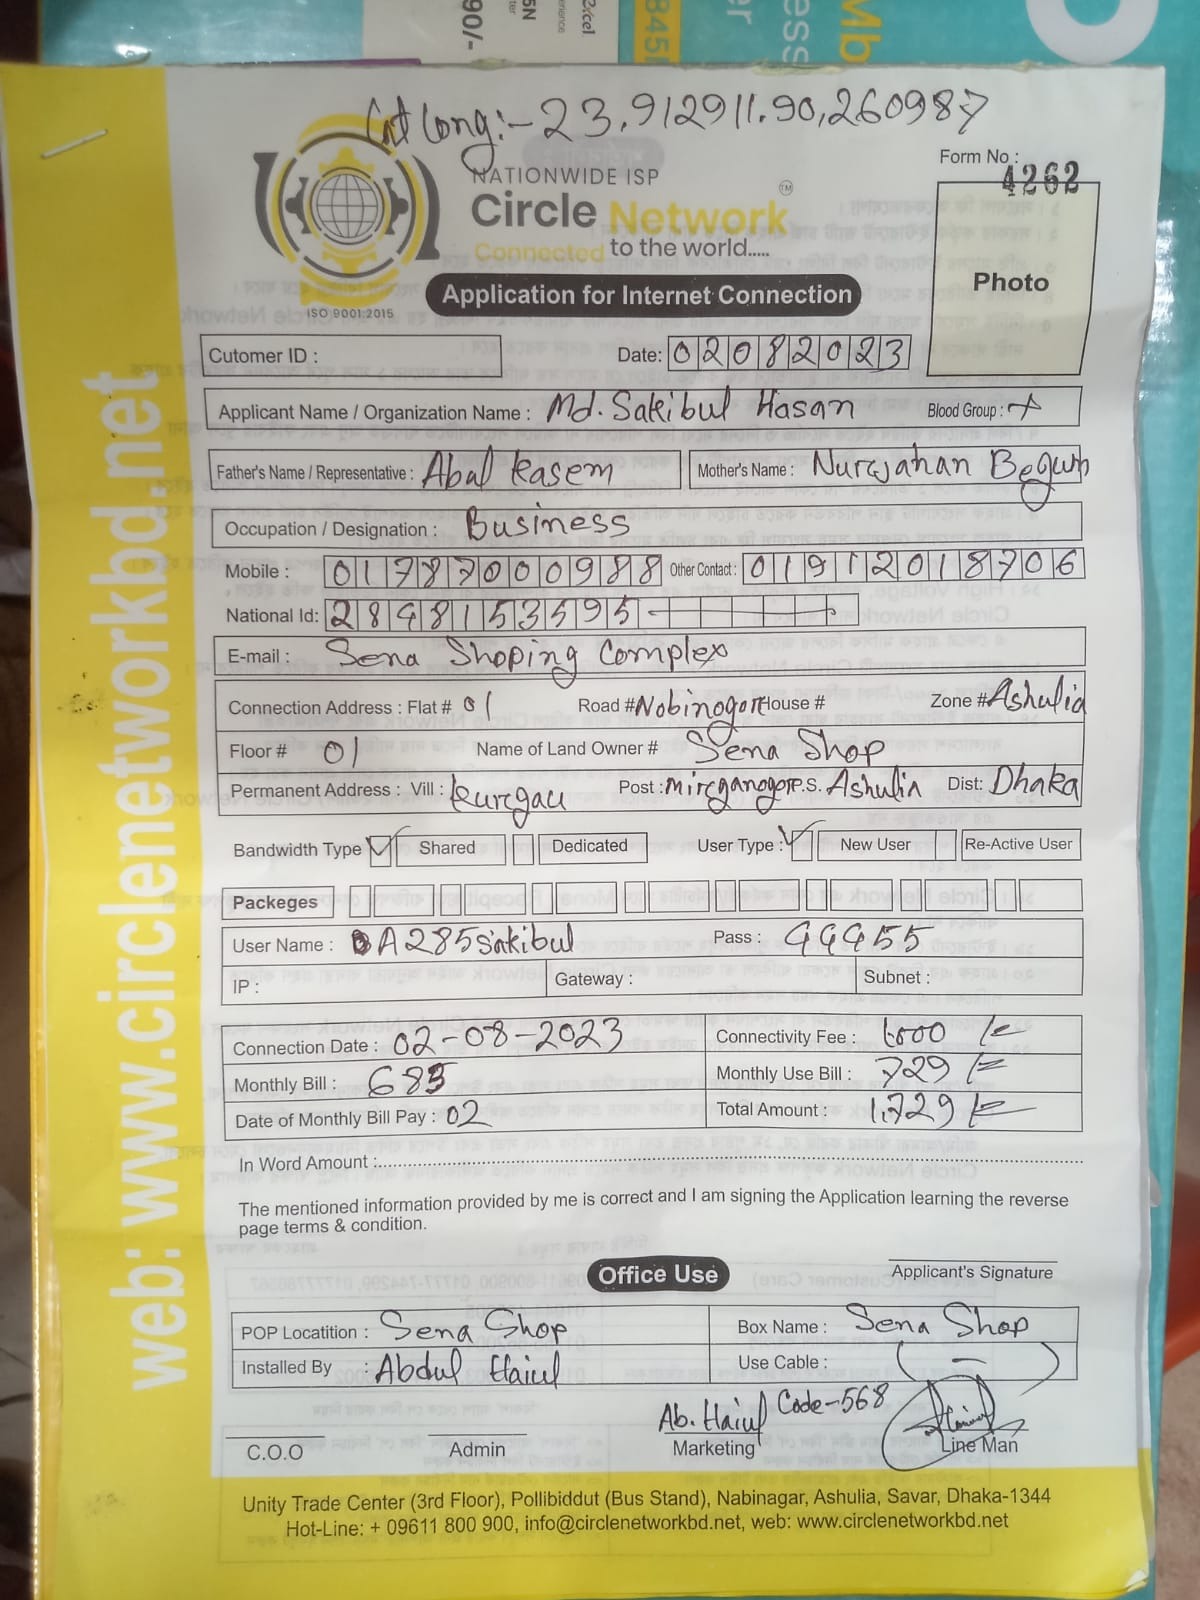 Lat Long:- 23.912911.90,260987
NATIONWIDE ISP
Circle Network
TM
Connected to the world.....
ISO 9001:2015
Form No : 4262
Photo
Application for Internet Connection
Cutomer ID :
Date: 02082023
Applicant Name / Organization Name : Md. Sakibul Hasan Blood Group :
Father's Name / Representative : Abul Kasem Mother's Name : Nurjahan Begum
Occupation / Designation : Business
Mobile : 01787000988 Other Contact : 01912018706
National Id: 2898153595
E-mail : Sena Shoping Complex
Connection Address : Flat # 01 Road # Nobinogor House # Zone # Ashulia
Floor # 01 Name of Land Owner # Sena Shop
Permanent Address : Vill : Kurgau Post : P.S. Ashulia Dist: Dhaka
Bandwidth Type Shared Dedicated User Type : New User Re-Active User
Packeges
User Name : A285sakibul Pass : 99955
IP : Gateway : Subnet :
Connection Date : 02-08-2023 Connectivity Fee : 1000 /=
Monthly Bill : 685 Monthly Use Bill : 729 /=
Date of Monthly Bill Pay : 02 Total Amount : 1,729 /=
In Word Amount :
The mentioned information provided by me is correct and I am signing the Application learning the reverse
page terms & condition.
Applicant's Signature
Office Use
POP Locatition : Sena Shop Box Name : Sena Shop
Installed By : Abdul Haiul Use Cable : ( - )
Ab. Haiul Code-568
C.O.O Admin Marketing Line Man
Unity Trade Center (3rd Floor), Pollibiddut (Bus Stand), Nabinagar, Ashulia, Savar, Dhaka-1344
Hot-Line: + 09611 800 900, info@circlenetworkbd.net, web: www.circlenetworkbd.net
web: www.circlenetworkbd.net